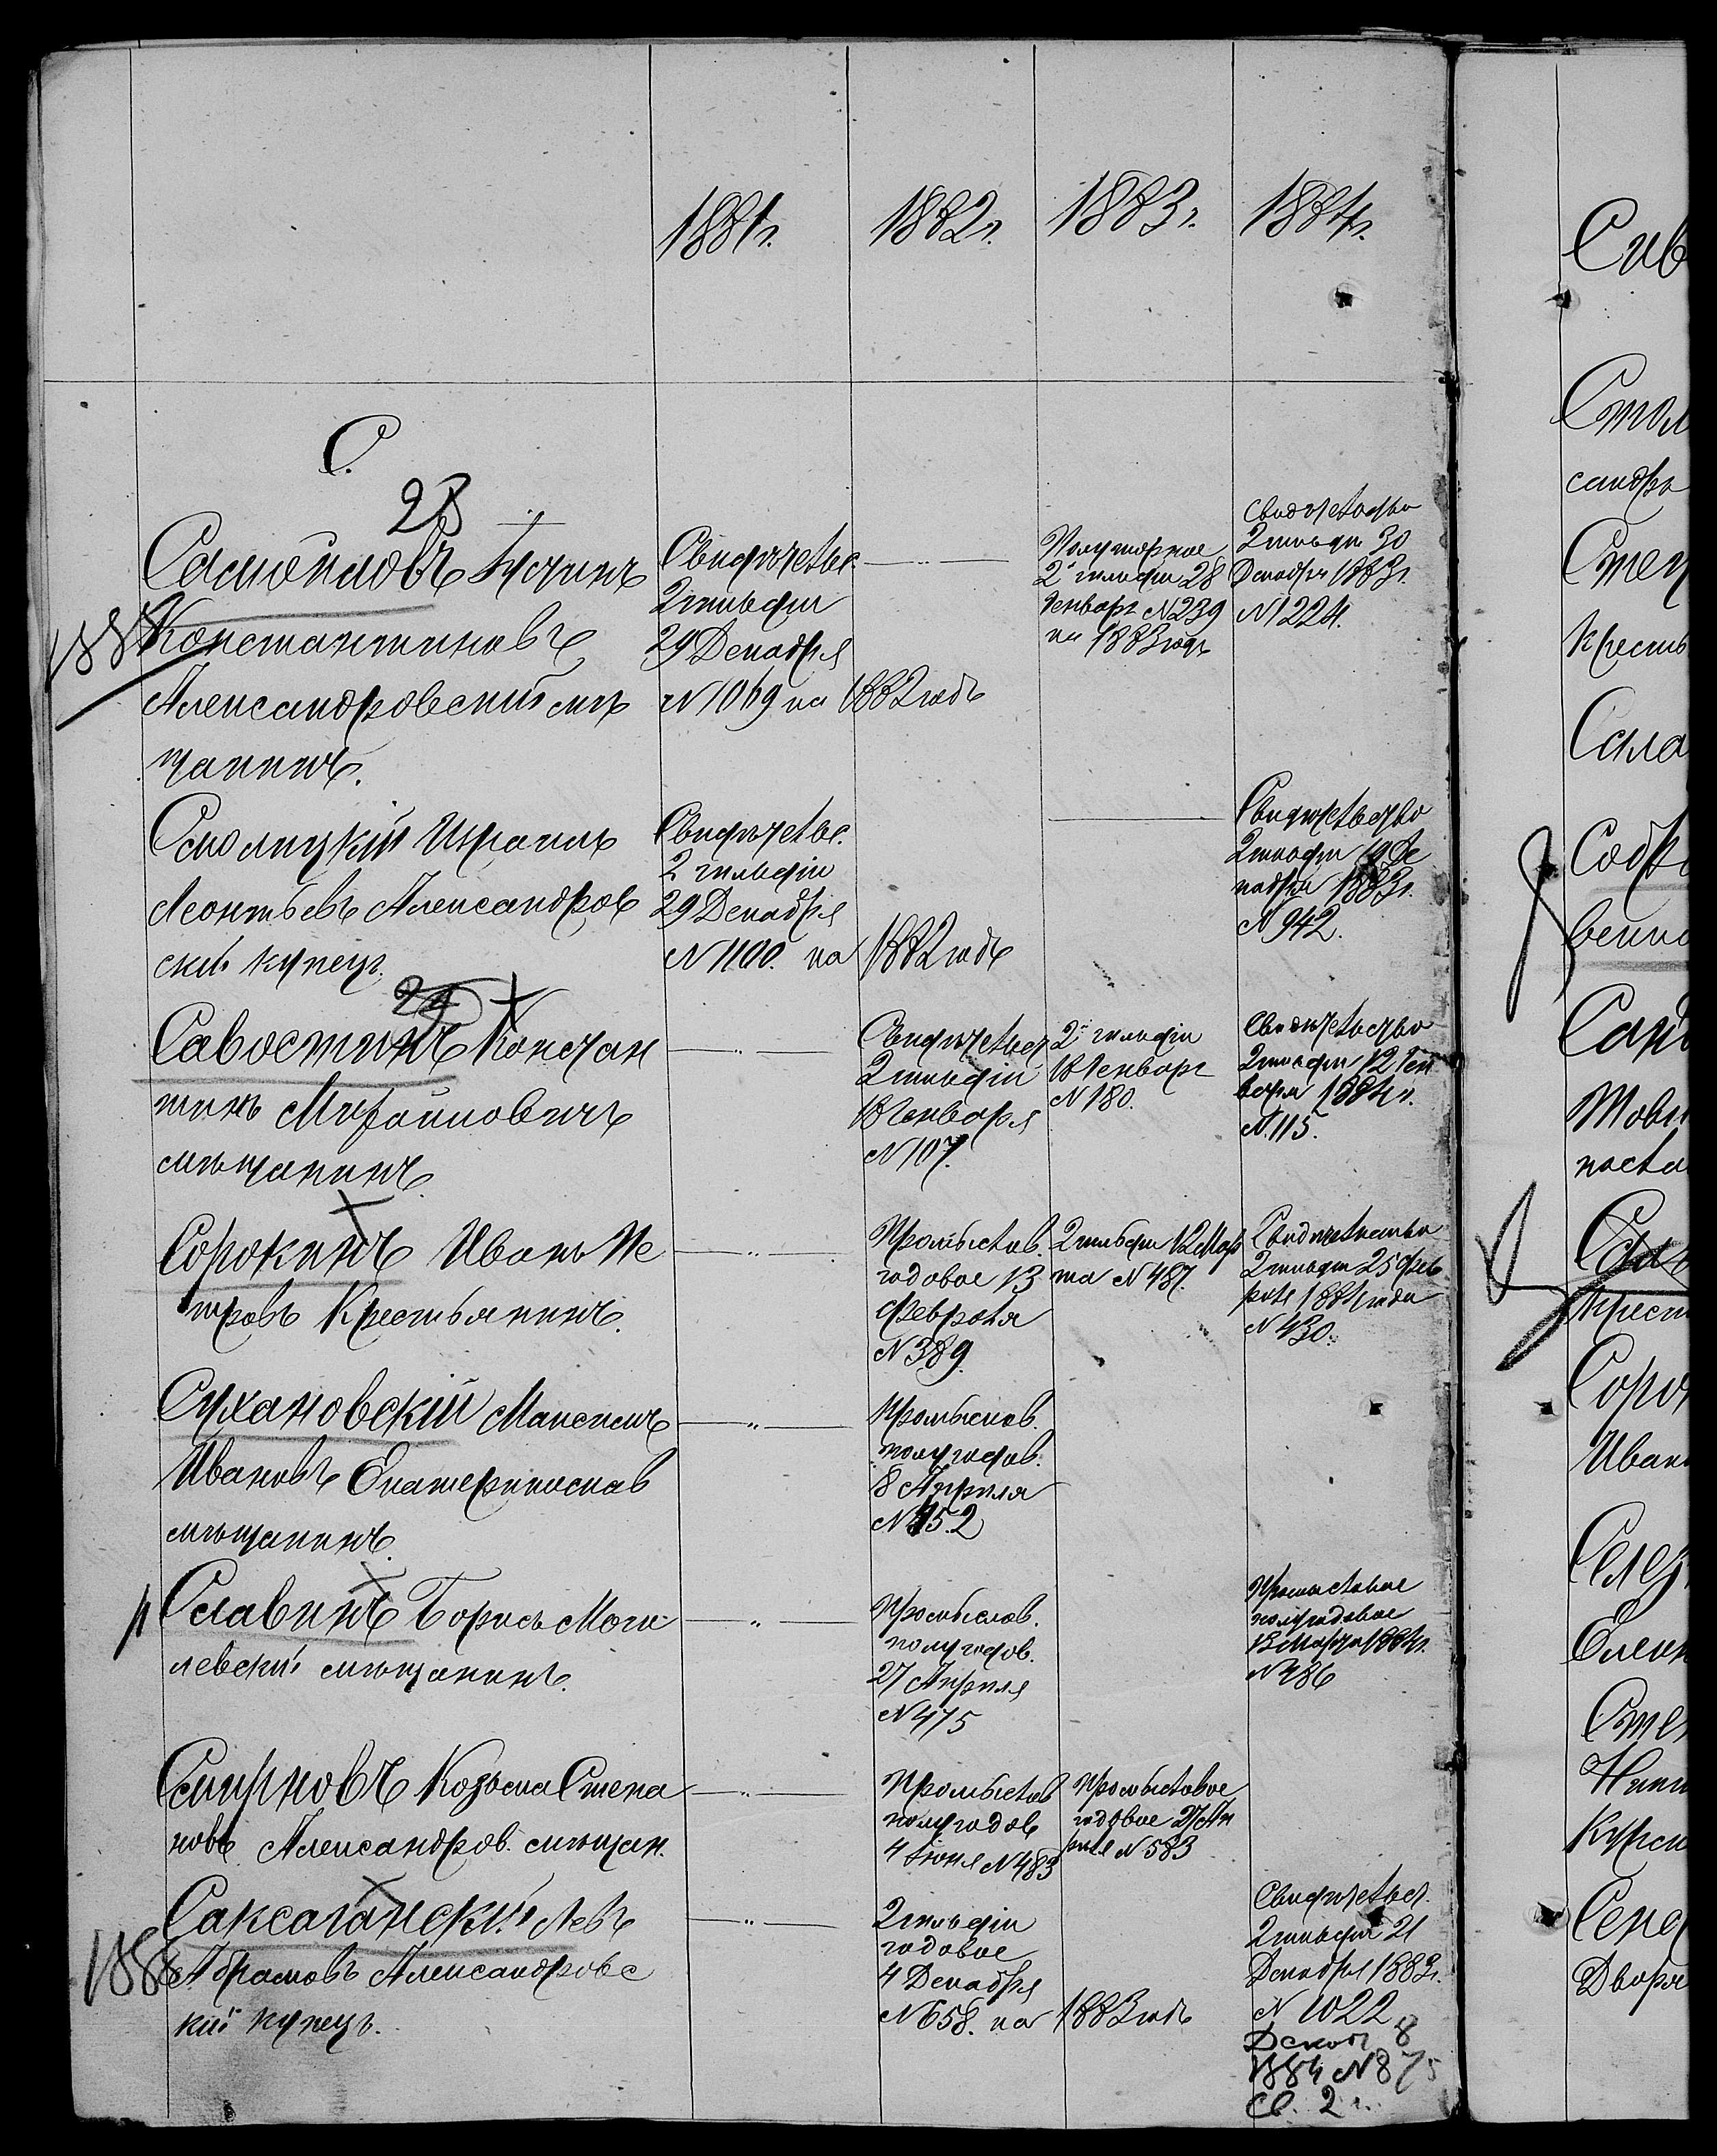 1881г. 1882г. 1883г. 1884г.
С.
23
Самойловъ
Константиновъ
Александровский мѣ
щанинъ.
188
Свидѣтельс.
2 гильдіи
29 Декабря
N 1069 на 1882 годъ
Полугодное
2й гильдіи 28
Генваря N 239
на 1883 годъ
Свидѣтельство
2 гильдіи 30
Декабря 1883г.
N 1224.
Смолицкій Израиль
Леонтьевъ Александров
скій купецъ.
Свидѣтельс.
2 гильдіи
29 Декабря
N 1100. на 1882 годъ
Свидѣтельство
2 гильдіи 19 Де
кабря 1883г.
N 942.
Савостинъ Констан
тинъ Михайловичъ
мѣщанинъ.
Свидѣтельст
2 гильдіи
18 Генваря
N 107.
2й гильдіи
18 Генваря
N 180.
Свидѣтельство
2 гильдіи 12 Ген
варя 1884г.
N 115.
Сорокинъ Иванъ Пе
тровъ Крестьянинъ.
Промыслов.
годовое 13
Февраля
N 389.
2 гильдіи 12 Мар
та N 487.
Свидѣтельство
2 гильдіи 25 Фев
раля 1884 года
N 430.
Сухановскій Максимъ
Ивановъ Екатеринослав
мѣщанинъ.
Промыслов.
полугодов.
8 Апреля
N 452
Славинъ Борисъ Моги
левскій мѣщанинъ.
Промыслов.
полугодов.
27 Апреля
N 475
Промысловое
полугодовое
13 Марта 1884г.
N 486
Смирновъ Козьма Степа
новъ Александров. мѣщан.
Промыслов
полугодов
4 Іюня N 483
Промысловое
годовое 27 Ап
реля N 583
Саксаганскій Левъ
Абрамовъ Александровс
кій купецъ.
188
2 гильдіи
годовое
4 Декабря
N 658. на 1883 годъ
Свидѣтельст.
2 гильдіи 21
Декабря 1883г.
N 1022
Декаб 8
1884 N 875
Св. 2 г.
Сив
Стол
сандръ
Степ
Крестья
Сала
Собр
венно
Товар
поста
Крест
Соро
Иван
Селез
Елен
Степ
Никол
Курск
Дворя